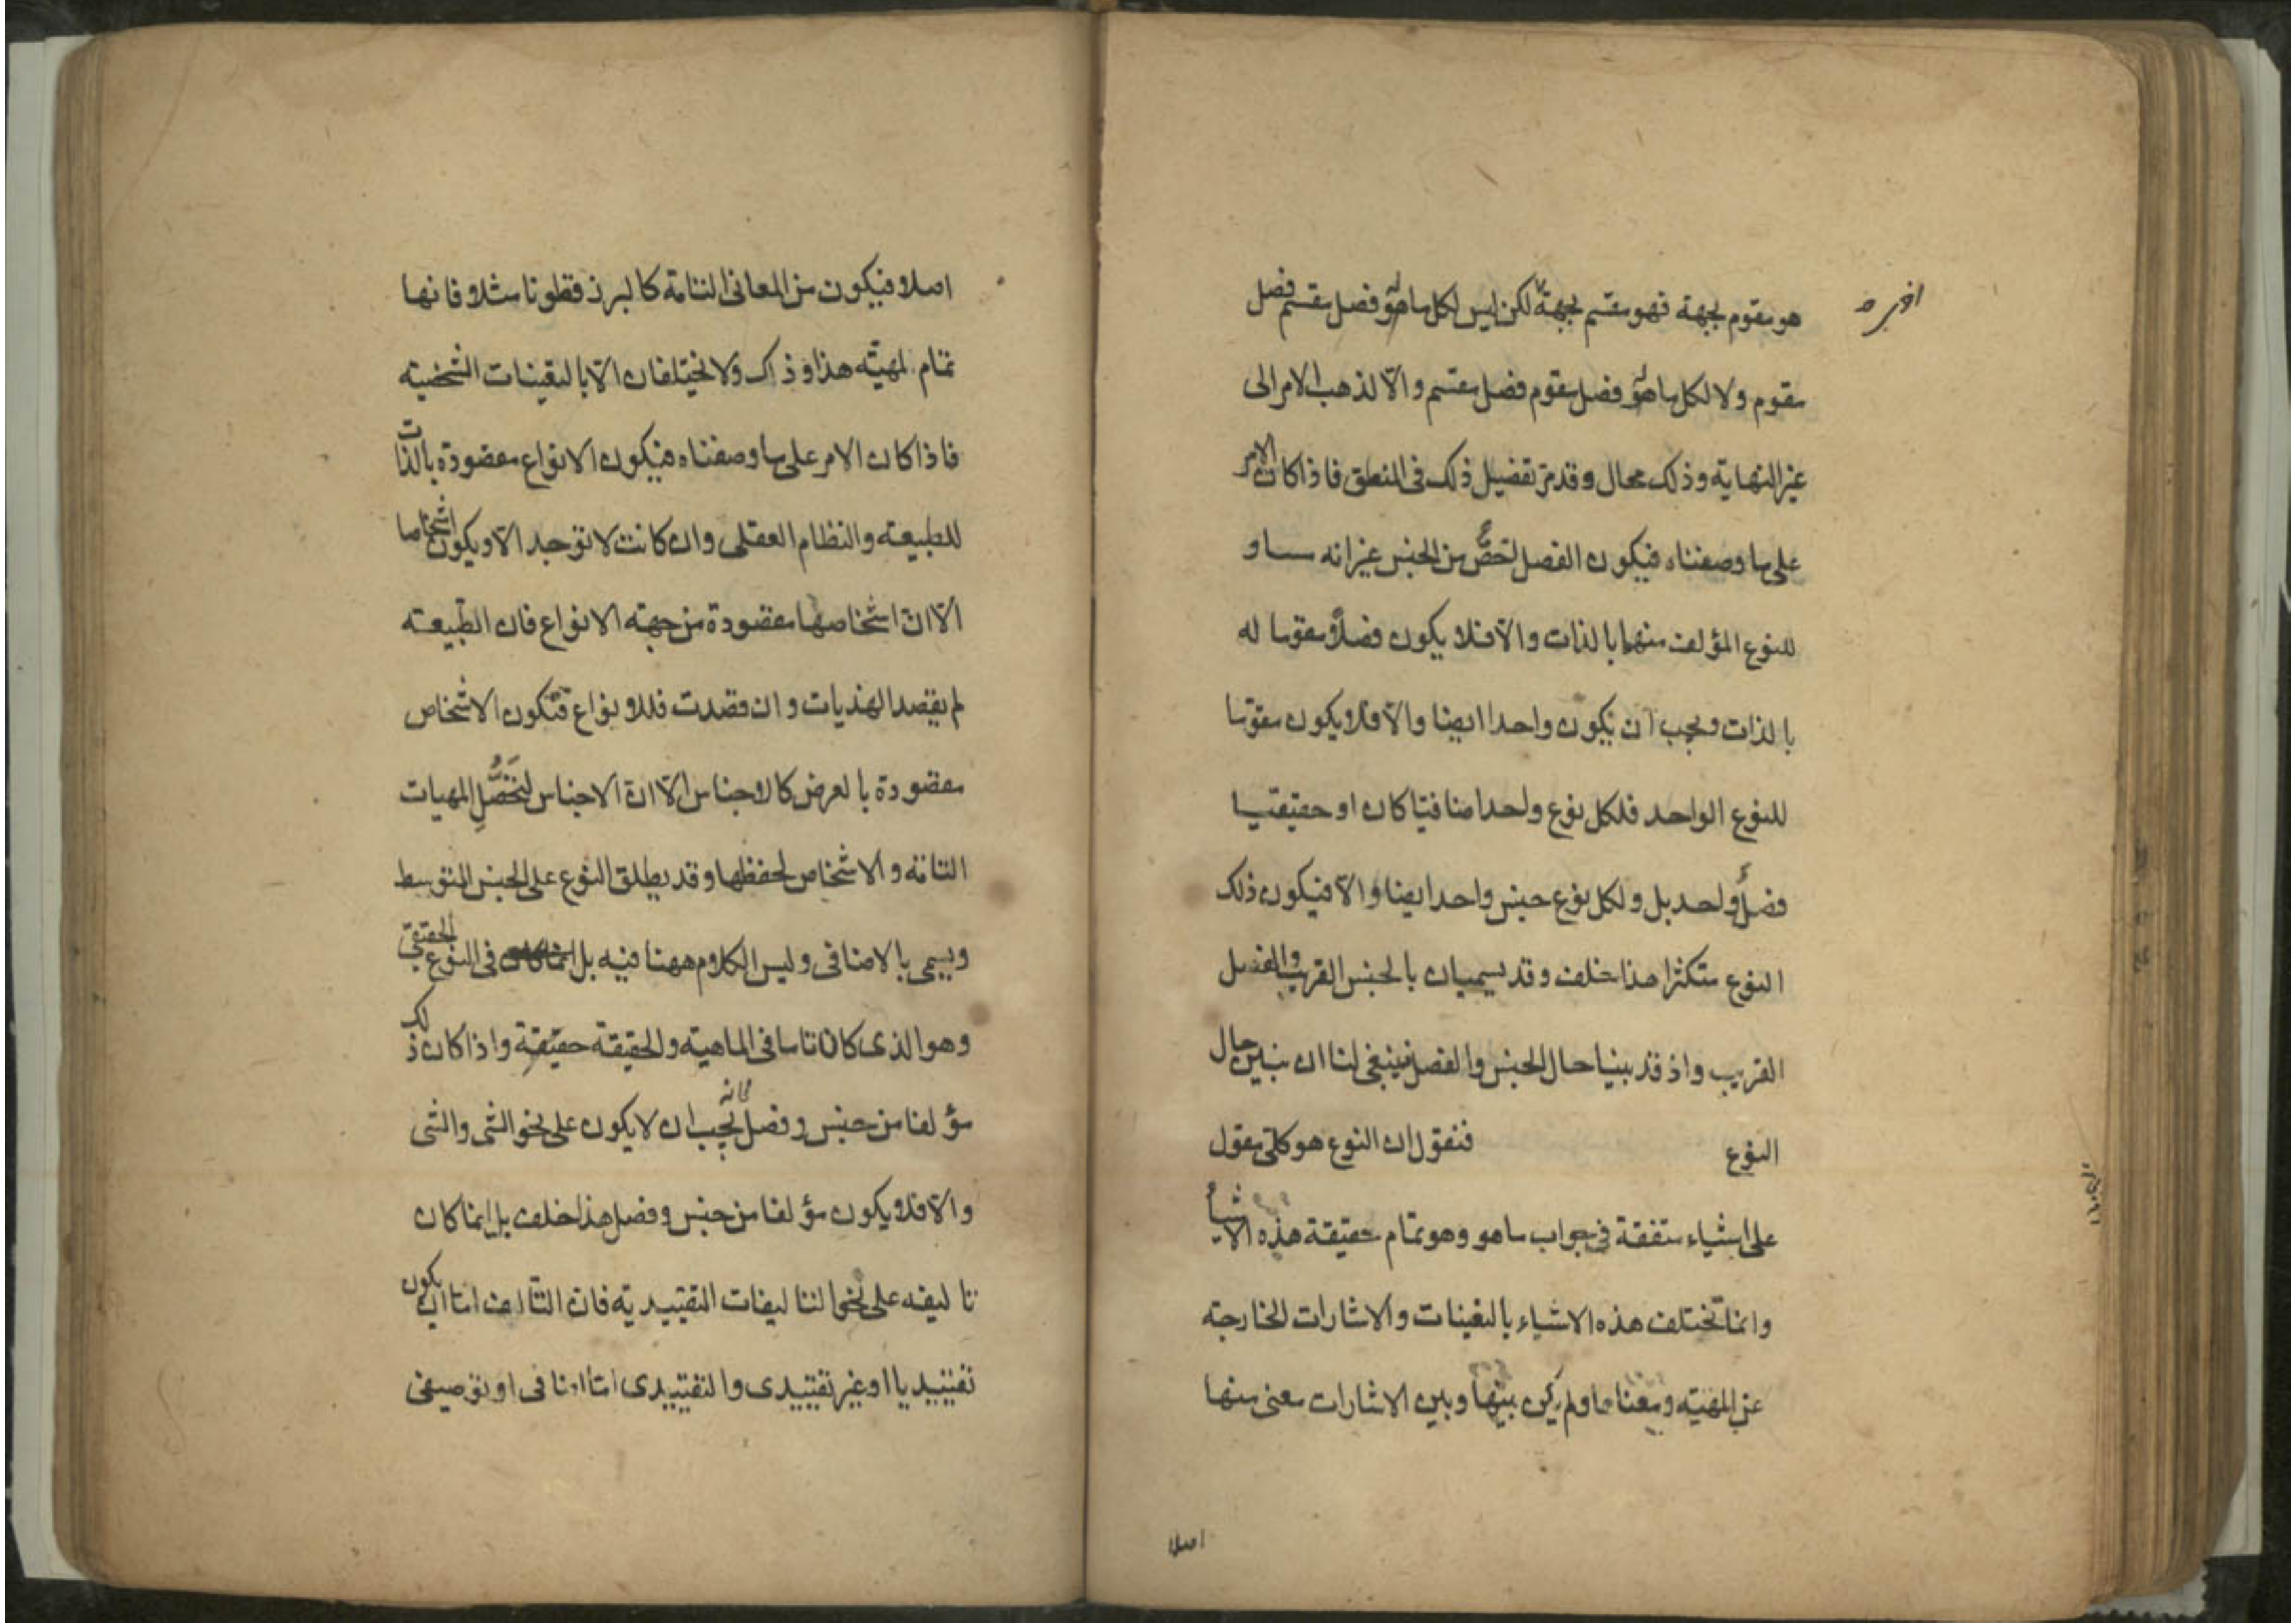 هو مقوم لجهة فهو مقسم لجهة لكن ليس لكل ما هو فصل مقسم فصل
اخرى صح
مقوم ولا لكل ما هو فصل مقوم فصل مقسم والّا لذهب الامر الى
غير النهاية وذلك محال وقد مرّ تفصيل ذلك فى المنطق فاذا كان الامر
على ما وصفناه فيكون الفصل اخصّ من الجنس غير انه مساو
للنوع المؤلف منهما بالذات والّا فلا يكون فصلا ومقوما له
بالذات ويجب أن يكون واحدا ايضا والّا فلا يكون مقوّما
للنوع الواحد فلكل نوع واحد اضافيّا كان او حقيقيّا
فصلٌ واحد بل ولكل نوع جنس واحد ايضا والّا فيكون ذلك
النوع متكثرا هذا خلف وقد يسميان بالجنس القريب والفصل
القريب واذ قد بينا حال الجنس والفصل فينبغى لنا ان نبين حال
النوع فنقول ان النوع هو كلّى مقول
على اشياء متفقة فى جواب ما هو وهو تمام حقيقة هذه الاشياء
وانما تختلف هذه الاشياء بالتعينات والاشارات الخارجة
عن المهيّه ومعناها ولم يكن بينها وبين الاشارات معنى منها
اصلا
اصلا فيكون من المعانى التامة كالبرز قطونا مثلا فانها
تمام لمهيّه هذا وذاك ولا يختلفان الّا بالتعينات الشخصية
فاذا كان الامر على ما وصفناه فيكون الانواع مقصودة بالذّات
للطبيعه والنظام العقلى وان كانت لا توجد الّا ويكون اشخاصا
الّا انّ اشخاصها مقصودة من جهة الانواع فان الطّبيعه
لم يقصد الهذيات وان قصدت فللانواع فتكون الاشخاص
مقصودة بالعرض كالاجناس الّا انّ الاجناس لتحصّل المهيات
التامّه والاشخاص لحفظها وقد يطلق النوع على الجنس المتوسط
ويسمى بالاضافى وليس الكلام ههنا فيه بل فى النوع الحقيقىّ
وهو الذى كان تاما فى الماهية والحقيقة حقيقة واذا كان ذلك
مؤلفا من جنس وفصل فانه يجب ان لا يكون على نحو الشى والشى
والّا فلا يكون مؤلفا من جنس وفصل هذا خلف بل انما كان
تاليفه على نحو التاليفات التقييديه فانّ التّالف امّا ان يكون
تقييديا او غير تقييدى والتقييدى امّا اضافى او توصيفى